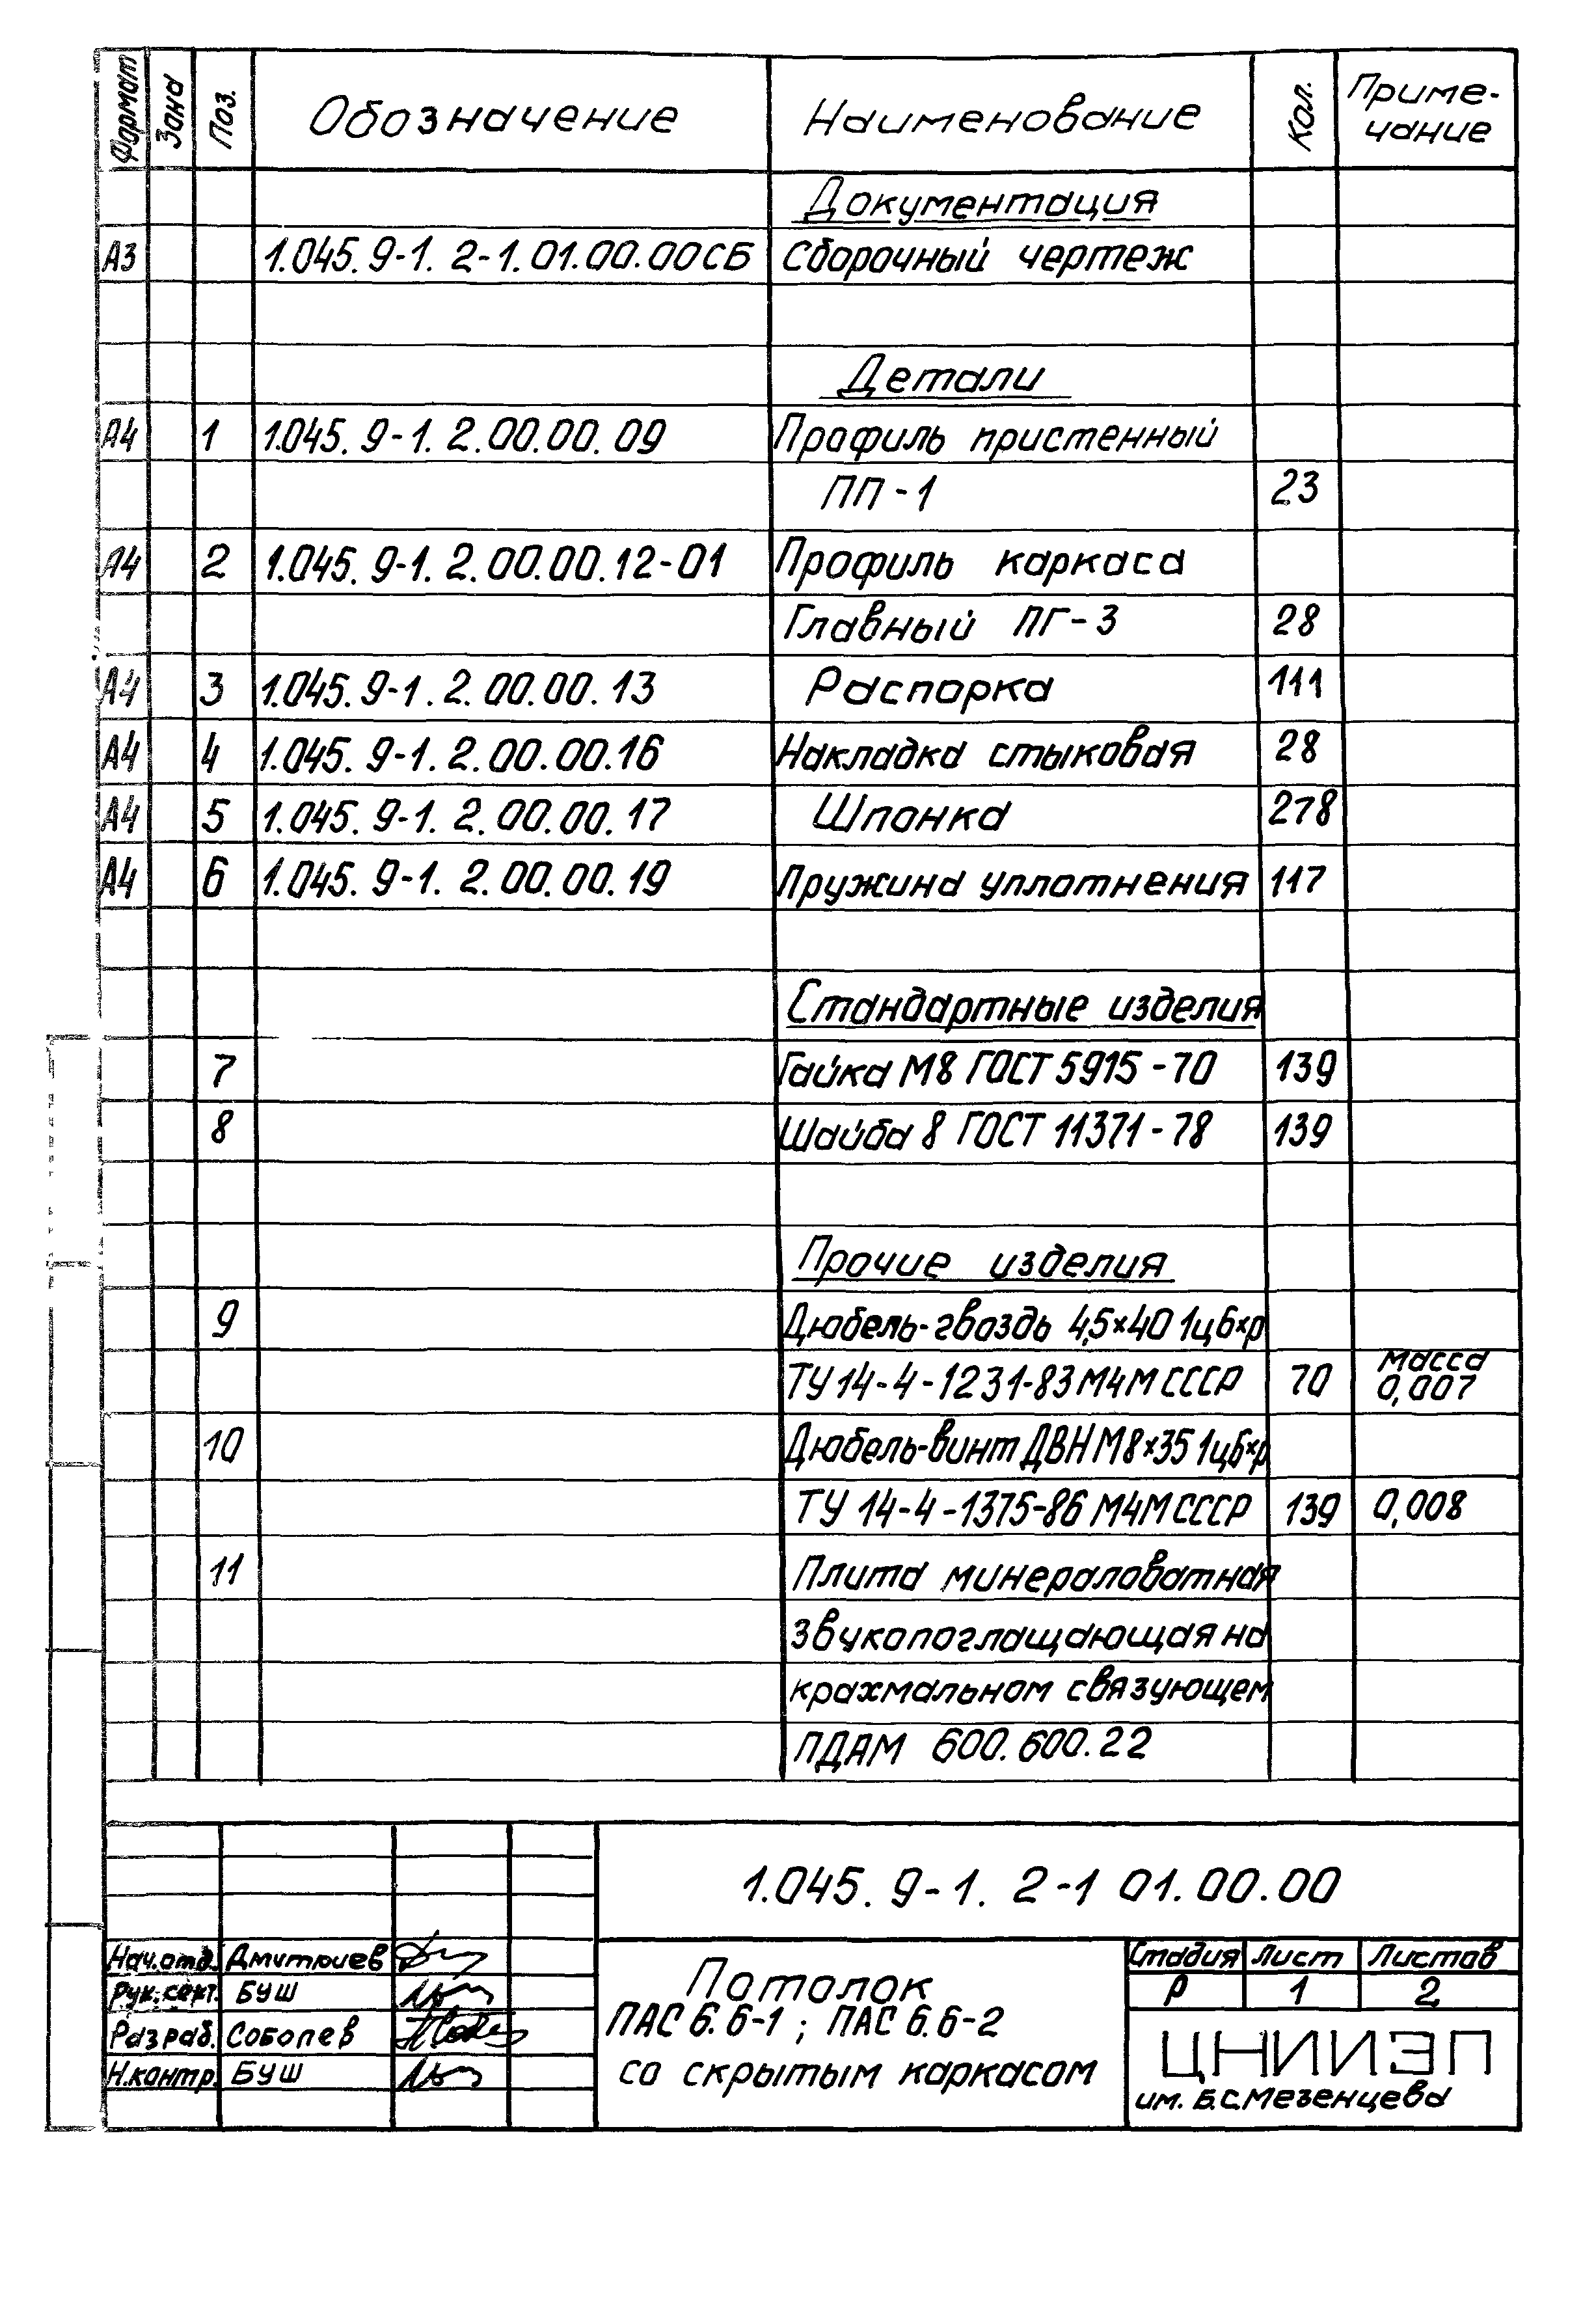 Формат Зона Поз. Обозначение Наименование Кол. Приме-
чание
Документация
А3 1.045.9-1. 2-1.01.00.00СБ Сборочный чертеж
Детали
А4 1 1.045.9-1.2.00.00.09 Профиль пристенный
ПП-1 23
А4 2 1.045.9-1.2.00.00.12-01 Профиль каркаса
Главный ПГ-3 28
А4 3 1.045.9-1.2.00.00.13 Распорка 111
А4 4 1.045.9-1.2.00.00.16 Накладка стыковая 28
А4 5 1.045.9-1.2.00.00.17 Шпонка 278
А4 6 1.045.9-1.2.00.00.19 Пружина уплотнения 117
Стандартные изделия
7 Гайка М8 ГОСТ 5915-70 139
8 Шайба 8 ГОСТ 11371-78 139
Прочие изделия
9 Дюбель-гвоздь 4,5×40 1ц6хр
ТУ 14-4-1231-83 МЧМ СССР 70 масса 0,007
10 Дюбель-винт ДВН М8×35 1ц6хр
ТУ 14-4-1375-86 МЧМ СССР 139 0,008
11 Плита минераловатная
звукопоглащающая на
крахмальном связующем
ПДАМ 600.600.22
1.045.9-1. 2-1 01.00.00
Нач.отд. Дмитриев
Рук.сект. БУШ
Разраб. Соболев
Н.контр. БУШ
Потолок
ПАС 6.6-1; ПАС 6.6-2
со скрытым каркасом
Стадия Лист Листов
Р 1 2
ЦНИИЭП
им. Б.С.Мезенцева